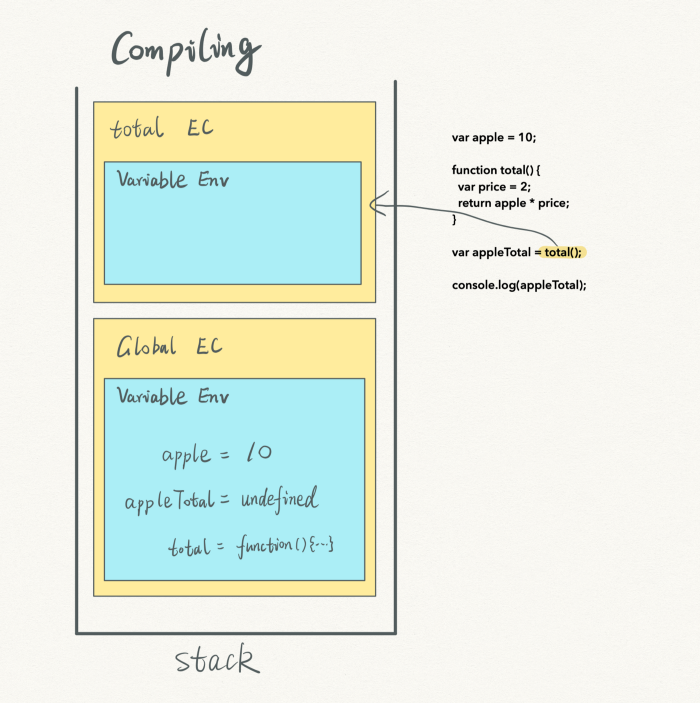 Compiling
total EC
Variable Env
Global EC
Variable Env
apple = 10
appleTotal = undefined
total = function(){...}
stack
var apple = 10;
function total() {
var price = 2;
return apple * price;
}
var appleTotal = total();
console.log(appleTotal);